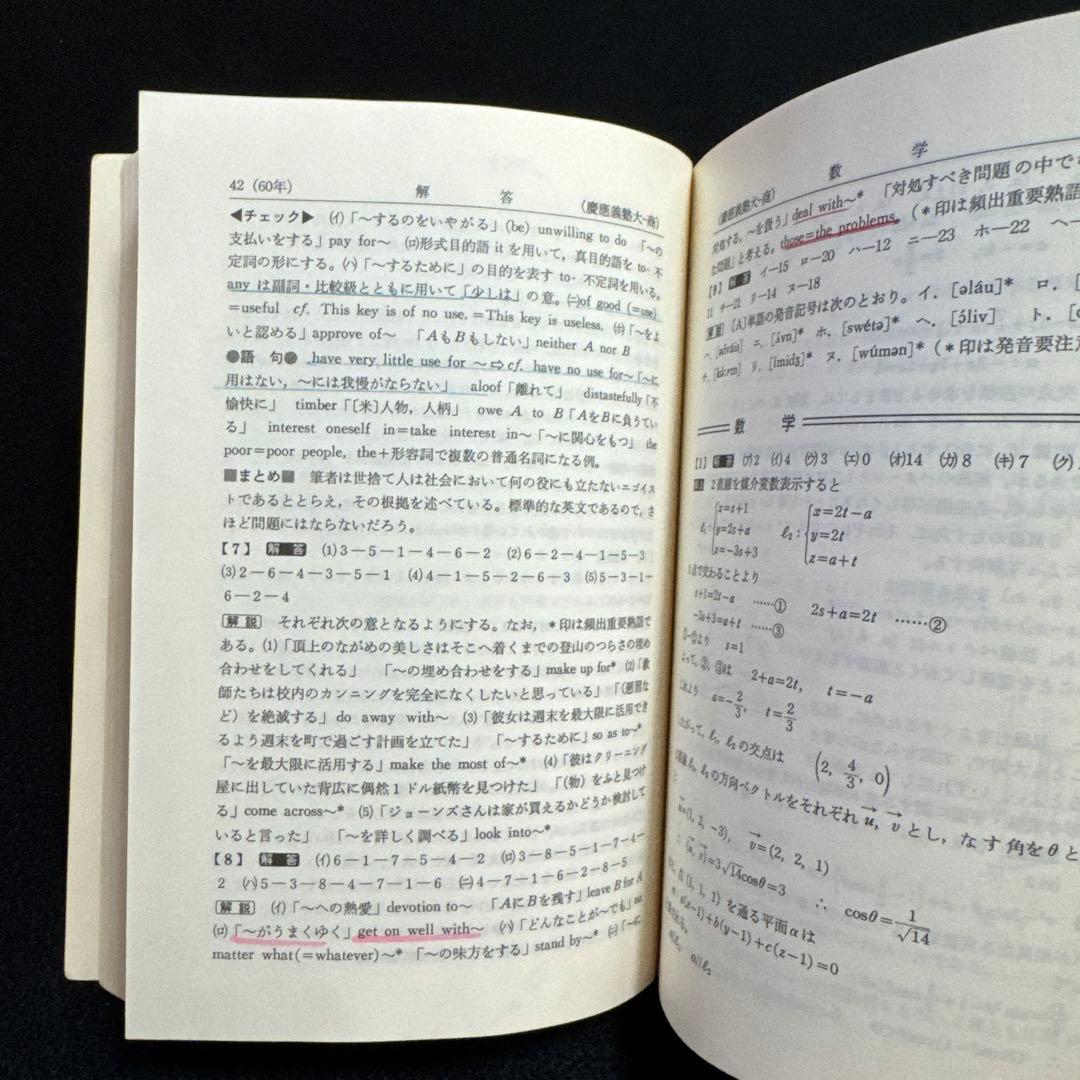 42 (60年) 解 答 (慶應義塾大-商)
◀チェック▶ (イ)「〜するのをいやがる」(be) unwilling to do 「〜の
支払いをする」pay for〜 (ロ)形式目的語 it を用いて,真目的語を to- 不
定詞の形にする。(ハ)「〜するために」の目的を表す to- 不定詞を用いる。
any は副詞・比較級とともに用いて「少しは」の意。(ニ)of good (=use)
=useful cf. This key is of no use.=This key is useless. (ホ)「〜をよ
いと認める」approve of〜 「AもBもしない」neither A nor B
●語 句● have very little use for 〜⇨cf. have no use for〜「〜に
用はない,〜には我慢がならない」 aloof「離れて」 distastefully「不
愉快に」 timber「〔米〕人物,人柄」 owe A to B「AをBに負うてい
る」 interest oneself in=take interest in〜「〜に関心をもつ」 the
poor=poor people, the+形容詞で複数の普通名詞になる例。
■まとめ■ 筆者は世捨て人は社会において何の役にも立たないエゴイス
トであるととらえ,その根拠を述べている。標準的な英文であるので,さ
ほど問題にはならないだろう。
【7】 解答 (1)3—5—1—4—6—2 (2)6—2—4—1—5—3
(3)2—6—4—3—5—1 (4)4—1—5—2—6—3 (5)5—3—1—
6—2—4
解説 それぞれ次の意となるようにする。なお,*印は頻出重要熟語で
ある。(1)「頂上のながめの美しさはそこへ着くまでの登山のつらさの埋め
合わせをしてくれる」 「〜の埋め合わせをする」make up for* (2)「教
師たちは校内のカンニングを完全になくしたいと思っている」「(悪習な
ど)を絶滅する」do away with〜 (3)「彼女は週末を最大限に活用でき
るよう週末を町で過ごす計画を立てた」 「〜するために」so as to〜*
「〜を最大限に活用する」make the most of〜* (4)「彼はクリーニング
屋に出していた背広に偶然1ドル紙幣を見つけた」「(物)をふと見つけ
る」come across〜* (5)「ジョーンズさんは家が買えるかどうか検討して
いると言った」 「〜を詳しく調べる」look into〜*
【8】 解答 (イ)6—1—7—5—4—2 (ロ)3—8—5—1—7—4—
2 (ハ)5—3—8—4—7—1—6 (ニ)4—7—1—6—2—8—5
解説 (イ)「〜への熱愛」devotion to〜 「AにBを残す」leave B for A
(ロ)「〜がうまくゆく」get on well with〜 (ハ)「どんなことが〜でも」no
matter what(=whatever)〜* 「〜の味方をする」stand by〜* (ニ)「〜に
(慶應義塾大-商) 数 学
対処する,〜を扱う」deal with〜* 「対処すべき問題の中で
た問題」と考える。those=the problems. (*印は頻出重要熟語
【9】 解答 イ—15 ロ—20 ハ—12 ニ—23 ホ—22 ヘ—
11 チ—21 リ—14 ヌ—18
解説 [A]単語の発音記号は次のとおり。イ. [əláu]* ロ. [
ハ. [ədváis] ニ. [ʌ́vn]* ホ. [swétə]* ヘ. [ɔ́liv] ト. [
チ. [kɑ́ːrm] リ. [ímidʒ]* ヌ. [wúmən]* (*印は発音要注意
数 学
【1】 解答 (ア)2 (イ)4 (ウ)3 (エ)0 (オ)14 (カ)8 (キ)7 (ク)
2直線を媒介変数表示すると
ℓ₁: x=s+1 ℓ₂: x=2t-a
y=2s+a y=2t
z=-3s+3 z=a+t
点で交わることより
s+1=2t-a ……① 2s+a=2t ……②
-3s+3=a+t ……③
より s=1
よって,②,③は 2+a=2t, t=-a
これより a=-2/3, t=2/3
たがって,ℓ₁, ℓ₂ の交点は (2, 4/3, 0)
ℓ₁, ℓ₂ の方向ベクトルをそれぞれ u→, v→ とし,なす角を θ と
u→=(1, 2, -3), v→=(2, 2, 1)
∴ (u→, v→)=3√14cosθ=3 ∴ cosθ=1/√14
点(1, 1, 1) を通る平面 α は
a(x-1)+b(y-1)+c(z-1)=0
α//ℓ₂